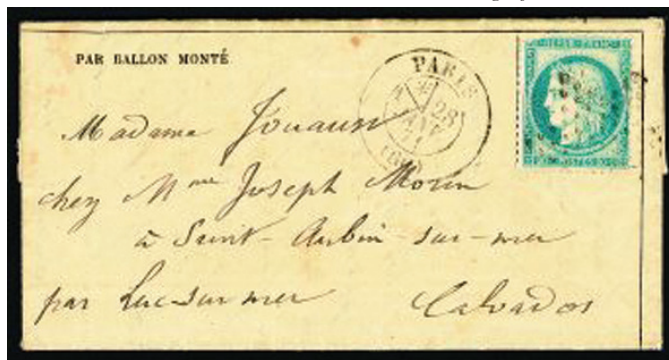 PAR BALLON MONTÉ
PARIS
28
JANV
71
Madame Jouaust
chez Mme Joseph Morin
à Saint-Aubin-sur-mer
par Luc-sur-mer Calvados